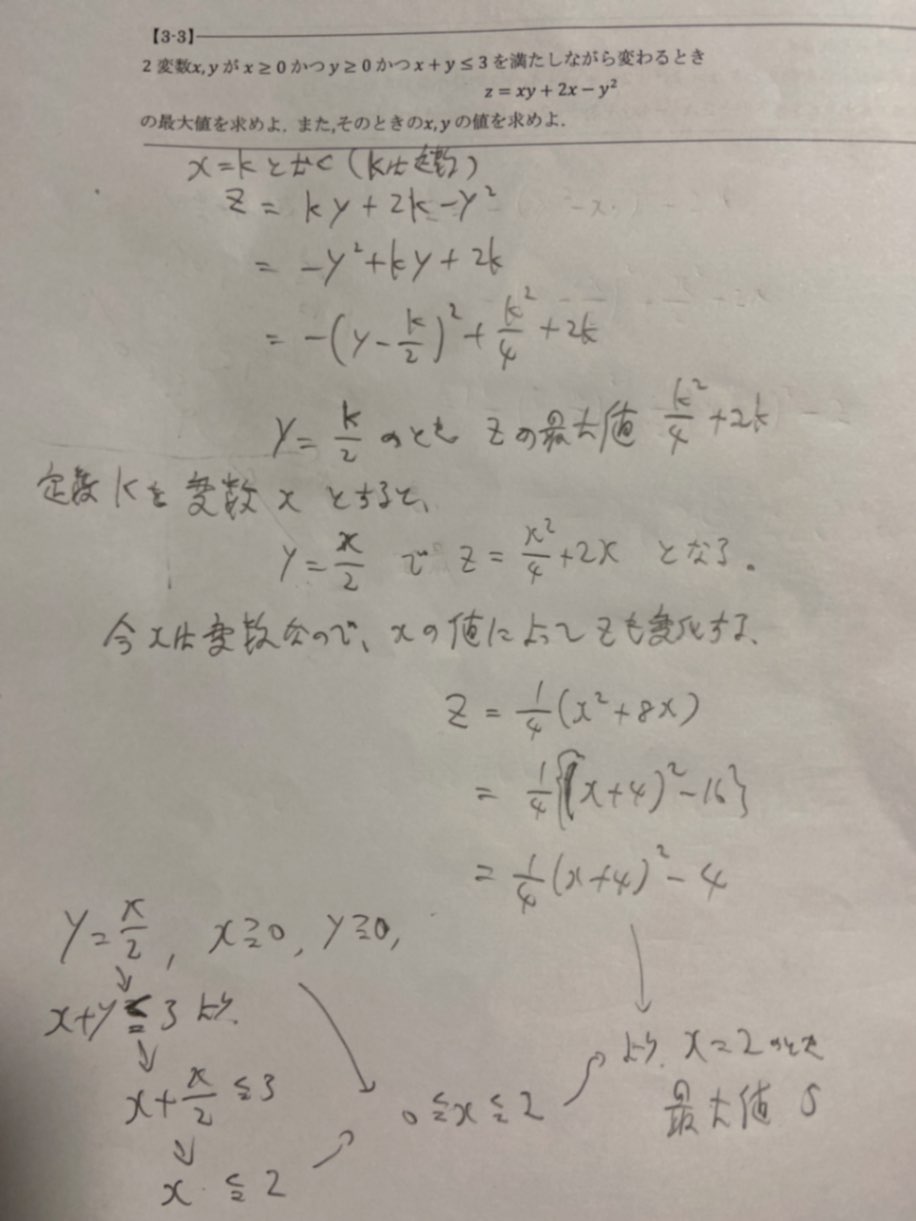 【3-3】
2変数x, yがx ≥ 0かつy ≥ 0かつx + y ≤ 3を満たしながら変わるとき
z = xy + 2x − y²
の最大値を求めよ. また,そのときのx, yの値を求めよ.
x=kとおく(kは定数)
z = ky+2k-y²
= -y²+ky+2k
= -(y-k/2)²+k²/4+2k
y=k/2のとき zの最大値 k²/4+2k
定数kを変数xとすると、
y=x/2で z=x²/4+2x となる。
今xは変数なので、xの値によってzも変化する、
z = 1/4(x²+8x)
= 1/4{(x+4)²-16}
= 1/4(x+4)²-4
y=x/2, x≧0, y≧0,
x+y≦3より.
x+x/2≦3
x≦2
0≦x≦2
より. x=2のとき
最大値 5